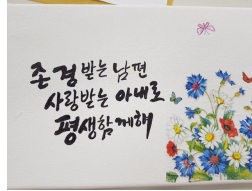 존경받는 남편
사랑받는 아내로
평생함께해